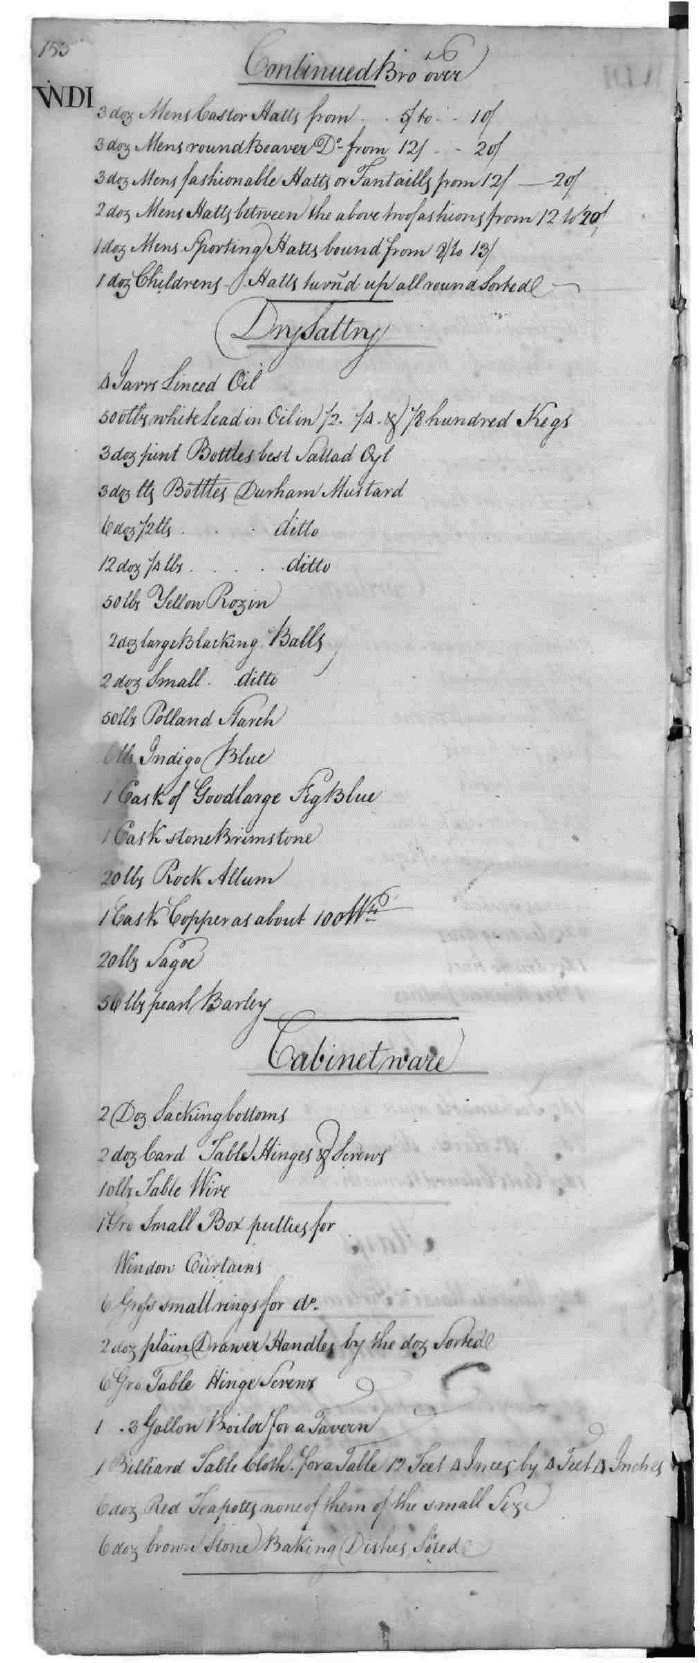 153
Continued Bro over
WDI
3 doz Mens Castor Hatts from . . 5/ to . . 10/
3 doz Mens round Beaver Do from 12/ . . 20/
3 doz Mens fashionable Hatts or Fantaills from 12/ — 20/
2 doz Mens Hatts between the above two fashions from 12 to 20/
1 doz Mens Sporting Hatts bound from 8/ to 13/
1 doz Childrens Hatts turnd up all round Sorted
DrySaltry
4 Jarrs Linced Oil
500tlbs white Lead in Oil in 1/2. 1/4. & 1/8 hundred Kegs
3 doz pint Bottles best Sallad Oyl
3 doz lb Bottles Durham Mustard
6 doz 1/2 lbs . . . . ditto
12 doz 1/4 lbs . . . . ditto
50 lbs Yellow Rozin
2 doz large Blacking Balls
2 doz Small . ditto
50 lbs Polland Starch
lbs Indigo Blue
1 Cask of Good large Fig Blue
1 Cask stone Brimstone
20 lbs Rock Allum
1 Cask Copperas about 100 Wt
20 lbs Sagoe
56 lbs pearl Barley
Cabinetware
2 Doz Sacking bottoms
2 doz Card Table Hinges & Screws
10 lbs Table Wire
1 Gro Small Box pullies for
Window Curtains
6 Gross small rings for do.
2 doz plain Drawer Handles by the doz Sorted
6 Gro Table Hinge Screws
1 . 3 Gallon Boilor for a Tavern
1 Billiard Table Cloth. for a Table 12 Feet 4 Inces by 4 Feet 4 Inches
6 doz Red Teapotts none of them of the small Size
6 doz brown Stone Baking Dishes Sored